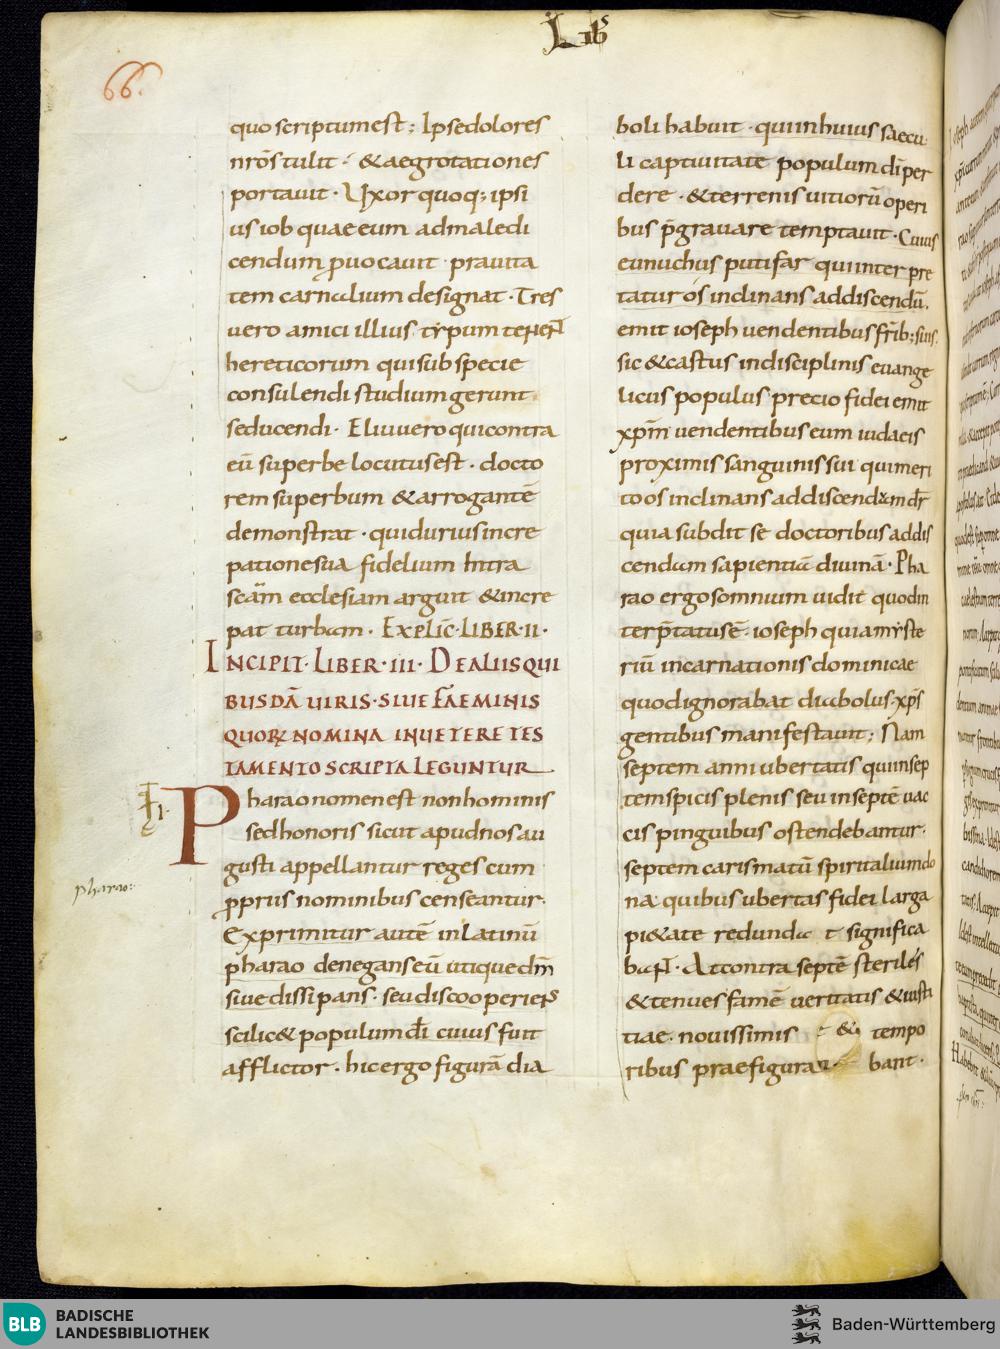 Lib̅s
66.
quo scriptum est ; Ipse dolores
nr̅os tulit · & aegrotationes
portauit · Uxor quoq; ipsi
us iob quae eum ad maledi
cendum ꝓuocauit prauita
tem carnalium designat · Tres
uero amici illius tẏpum tener̅
hereticorum qui sub specie
consulendi studium gerunt
seducendi · Eliu uero qui contra
eū superbe locutus est · docto
rem superbum & arrogantē
demonstrat · qui durius incre
patione sua fidelium intra
scām ecclesiam arguit & incre
pat turbam · EXPLIC̅ · LIBER · II ·
INCIPIT · LIBER · III · DE ALIIS QUI
BUSDĀ UIRIS · SIUE FAEMINIS
QUORꝜ NOMINA IN UETERE TES
TAMENTO SCRIPTA LEGUNTUR
I.
Pharao nomen est non hominis
sed honoris sicut apud nos au
gusti appellantur reges cum
ꝓpriis nominibus censeantur ·
pharao:
Exprimitur autē in latinū
pharao denegans eū utique dm̅
siue dissipans · seu discooperiens
scilic& populum di̅ cuius fuit
afflictor · hic ergo figurā dia
boli habuit · qui in huius saecu
li captiuitate populum di̅ per
dere · & terrenis uitiorū operi
bus p̅grauare temptauit · Cuius
eunuchus putifar qui inter pre
tatur ós inclinans ad discendū.
emit ioseph uendentibus fr̅ib; suis.
sic & castus in disciplinis euange
licus populus precio fidei emit
xp̅m uendentibus eum iudaeis
proximis sanguinis sui qui meri
to os inclinans ad discendum dr̅
quia subdit se doctoribus ad dis
cendam sapientiā diuinā · Pha
rao ergo somnium uidit quod in
terp̅tatus ē · ioseph quia mẏste
riū incarnationis dominicae
quod ignorabat diabolus · xp̅s
gentibus manifestauit ; Nam
septem anni ubertatis qui in sep
tem spicis plenis seu in septē uac
cis pinguibus ostendebantur ·
septem carismatū spiritalium do
na quibus ubertas fidei larga
pi&ate redundat significa
bat̅ · At contra septē steriles
& tenues famē ueritatis & iusti
tiae · nouissimis &  tempo
ribus praefigurabant ·